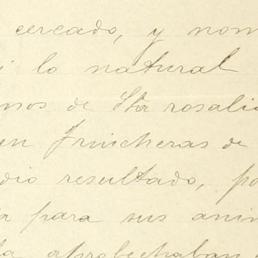 cercado, y nom
i lo natural
nos de Sta rosalia
en trincheras de
dio resultado, po
a para sus anim
la aprobechaban